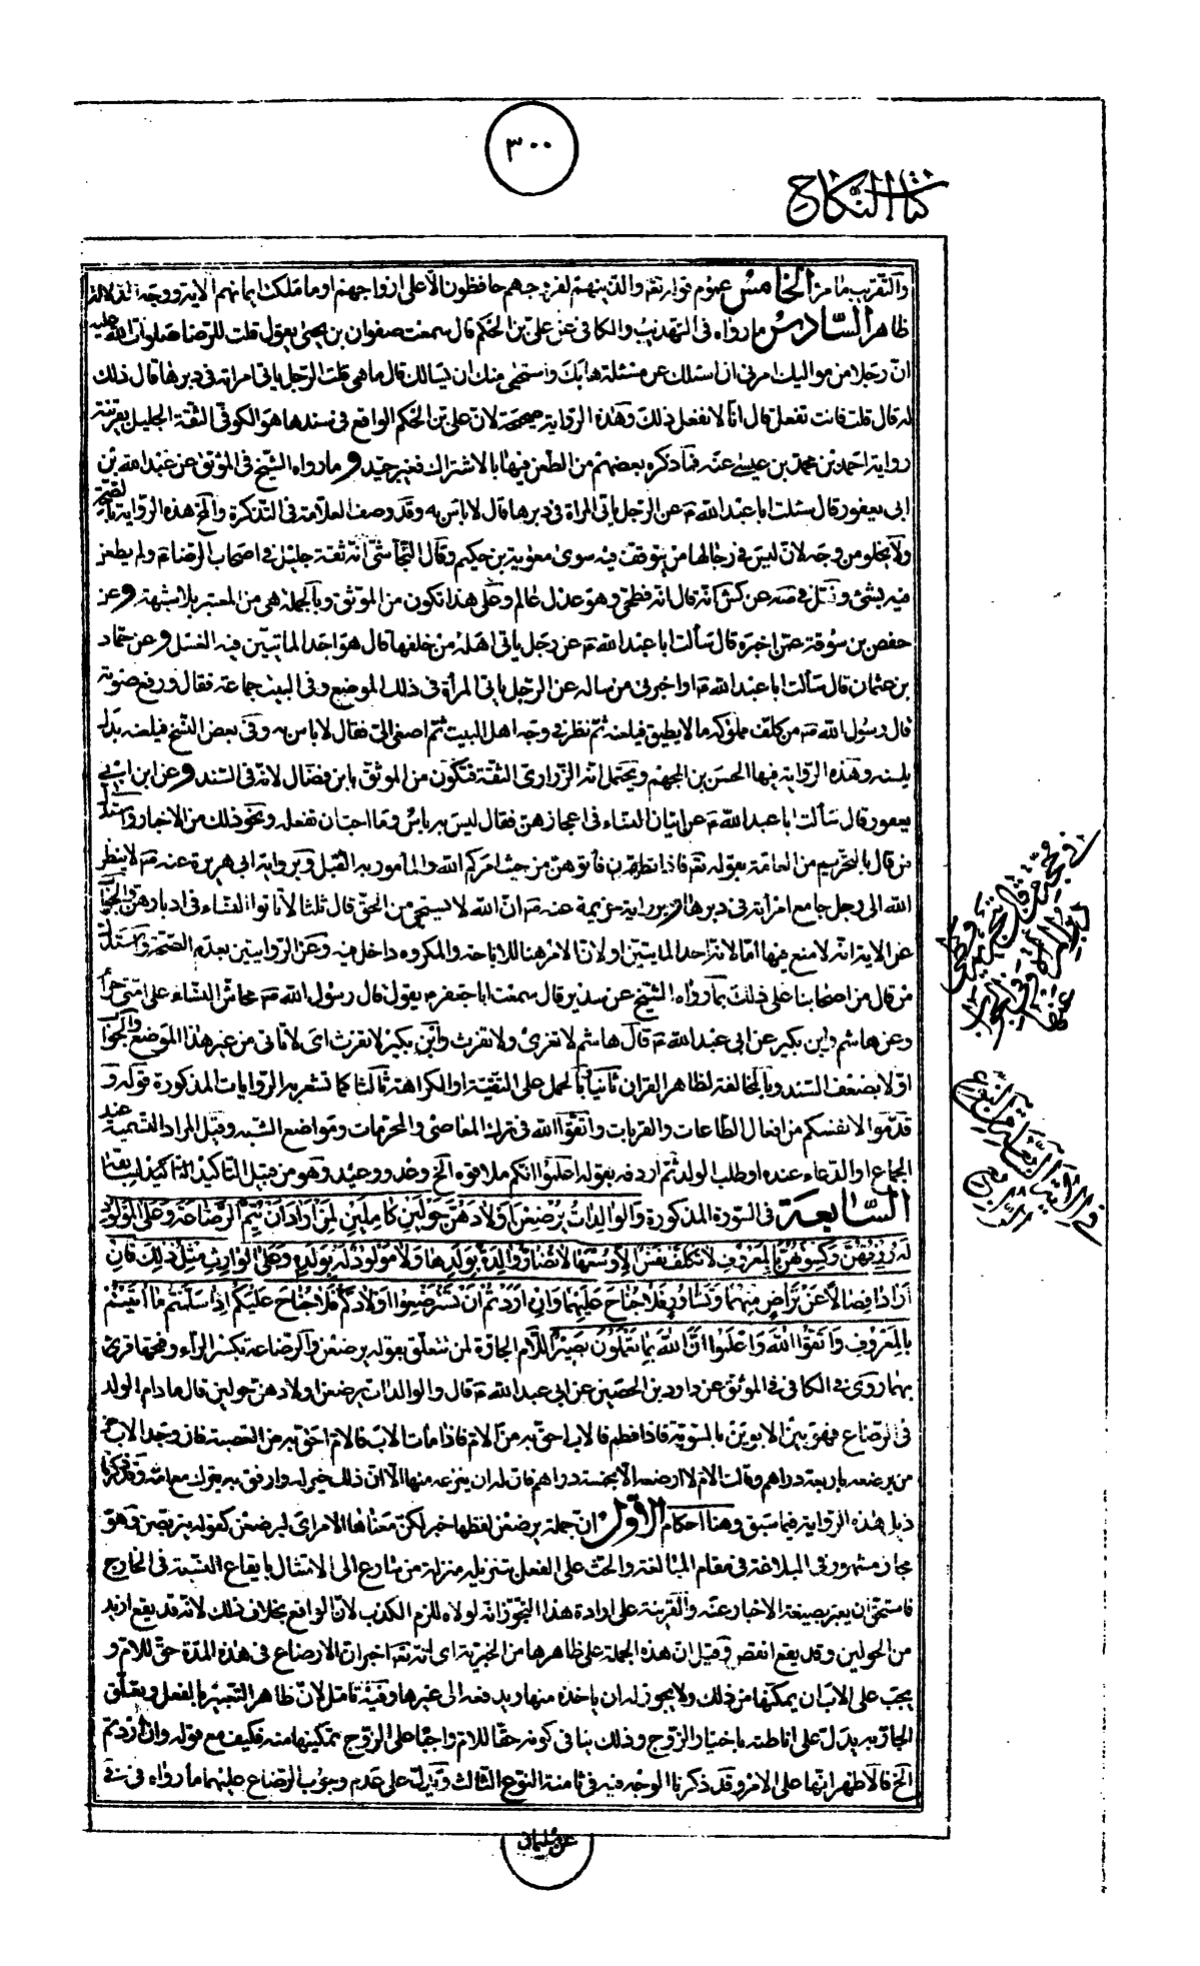 ٣٠٠
كتاب النكاح
والتقريب ما مر الخامس عموم قوله تعه والذينهم لفروجهم حافظون الا على ازواجهم او ما ملكت ايمانهم الاية ووجه الدلالة
ظاهر السادس ما رواه فى التهذيب والكافى عن على بن الحكم قال سمعت صفوان بن يحيى يقول قلت للرضا صلوات الله عليه
ان رجلا من مواليك امرنى ان اسئلك عن مسئلة هابك واستحيى منك ان يسالك قال ما هى قلت الرجل ياتى امراته فى دبرها قال ذلك
له قال قلت فانت تفعل قال انا لا نفعل ذلك وهذه الرواية صحيحة لان على بن الحكم الواقع فى سندها هو الكوفى الثقة الجليل بقرينة
رواية احمد بن محمد بن عيسى عنه فما ذكره بعضهم من الطعن فيها بالاشتراك فغير جيد و ما رواه الشيخ فى الموثق عن عبد الله بن
ابى يعفور قال سئلت ابا عبد الله ع عن الرجل ياتى المراة فى دبرها قال لا باس به وقد وصف العلامة فى التذكرة والخ هذه الرواية بالصحة
ولا يخلو من وجه لان ليس فى رجالها من يتوقف فيه سوى معوية بن حكيم وقال النجاشى انه ثقة جليل فى اصحاب الرضا ع ولم يطعن
فيه بشئ ونقل فى صه عن كش انه قال انه فطحى وهو عدل عالم وعلى هذا تكون من الموثق وبالجملة هى من المعتبر بلا شبهة و عن
حفص بن سوقة عمن اخبره قال سألت ابا عبد الله ع عن رجل ياتى اهله من خلفها قال هو احد الماتيين فيه الغسل و عن حماد
بن عثمان قال سألت ابا عبد الله ع او اخبرنى من ساله عن الرجل ياتى المرأة فى ذلك الموضع وفى البيت جماعة فقال ورفع صوته
قال رسول الله ص من كلف مملوكه ما لا يطيق فيلعنه ثم نظر فى وجه اهل البيت ثم اصغى الى فقال لا باس به وفى بعض النسخ فيلعنه بدله
يلسنه وهذه الرواية فيها الحسن بن الجهم ويحتمل انه الزرارى الثقة فتكون من الموثق بابن فضال لانه فى السند و عن ابن ابى
يعفور قال سألت ابا عبد الله ع عن اتيان النساء فى اعجازهن فقال ليس به باس وما احب ان تفعله ونحو ذلك من الاخبار واستدل
من قال بالتحريم من العامة بقوله تعه فاذا تطهرن فأتوهن من حيث امركم الله والمأمور به القبل وبرواية ابى هريرة عنه ص لا ينظر
الله الى رجل جامع امرأته فى دبرها وبرواية خزيمة عنه ص ان الله لا يستحيى من الحق قال ثلثا لا تأتوا النساء فى ادبارهن والجواب
عن الاية انه لا منع فيها اما لانه احد الماتيين او لان الامر هنا للاباحة والمكروه داخل فيه وعن الروايتين بعدم الصحة واستدل
من قال من اصحابنا على ذلك بما رواه الشيخ عن سدير قال سمعت ابا جعفر ع يقول قال رسول الله ص محاش النساء على امتى حرام
وعن هاشم وابن بكير عن ابى عبد الله ع قال هاشم لا تعرى ولا تفرث وابن بكير لا تفرث اى لا تاتى من غير هذا الموضع والجواب
اولا بضعف السند وبالمخالفة لظاهر القران ثانيا بالحمل على التقية او الكراهة ثالثا كما تشعر به الروايات المذكورة قوله و
قدموا لانفسكم من افعال الطاعات والقربات واتقوا الله فى ترك المعاصى والمحرمات ومواضع الشبه وقيل المراد التسمية عند
الجماع او الدعاء عنده او طلب الولد ثم اردفه بقوله اعلموا انكم ملاقوه الخ وعد ووعيد وهو من قبيل التاكيد لسابقتها
السابعة فى السورة المذكورة والوالدات يرضعن اولادهن حولين كاملين لمن اراد ان يتم الرضاعة وعلى المولود
له رزقهن وكسوتهن بالمعروف لا تكلف نفس الا وسعها لا تضار والدة بولدها ولا مولود له بولده وعلى الوارث مثل ذلك فان
ارادا فصالا عن تراض منهما وتشاور فلا جناح عليهما وان اردتم ان تسترضعوا اولادكم فلا جناح عليكم اذا سلمتم ما اتيتم
بالمعروف واتقوا الله واعلموا ان الله بما تعملون بصير اللام الجارة لمن تتعلق بقوله يرضعن والرضاعة بكسر الراء وفتحها قرئ
بهما روى فى الكافى فى الموثق عن داود بن الحصين عن ابى عبد الله ع قال والوالدات يرضعن اولادهن حولين قال ما دام الولد
فى الرضاع فهو بين الابوين بالسوية فاذا فطم فالاب احق به من الام فاذا مات الاب فالام احق به من العصبة فان وجد الاب
من يرضعه باربعة دراهم وقالت الام لا ارضعه الا بخمسة دراهم فان له ان ينزعه منها الا ان ذلك خير له وارفق به يترك مع امه وقد ذكرنا
ذيل هذه الرواية فيما سبق وهنا احكام الاول ان جملة يرضعن لفظها خبر لكن معناها الامر اى ليرضعن كقوله يتربصن وهو
مجاز مشهور فى البلاغة فى مقام المبالغة والحث على الفعل بتنزيله منزلة من سارع الى الامتثال بايقاع النسبة فى الخارج
فاستحق ان يعبر بصيغة الاخبار عنه والقرينة على ارادة هذا التجوز انه لولاه للزم الكذب لان الواقع بخلاف ذلك لانه قد يقع ازيد
من الحولين وقد يقع انقص وقيل ان هذه الجملة على ظاهرها من الخبرية اى انه تعه اخبر ان الارضاع فى هذه المدة حق للام و
يجب على الاب ان يمكنها من ذلك ولا يجوز له ان ياخذه منها ويدفعه الى غيرها وفيه تامل لان ظاهر التعبير بالفعل وبتعلق
الجار به يدل على اناطته باختيار الزوج وذلك ينافى كونه حقا للام واجبا على الزوج تمكينها منه فكيف مع قوله وان اردتم
الخ فالاظهر انها على الامر وقد ذكرنا الوجه فيه فى ثامنة النوع الثالث ويدل على عدم وجوب الرضاع عليها ما رواه فى فى
عن سليمان